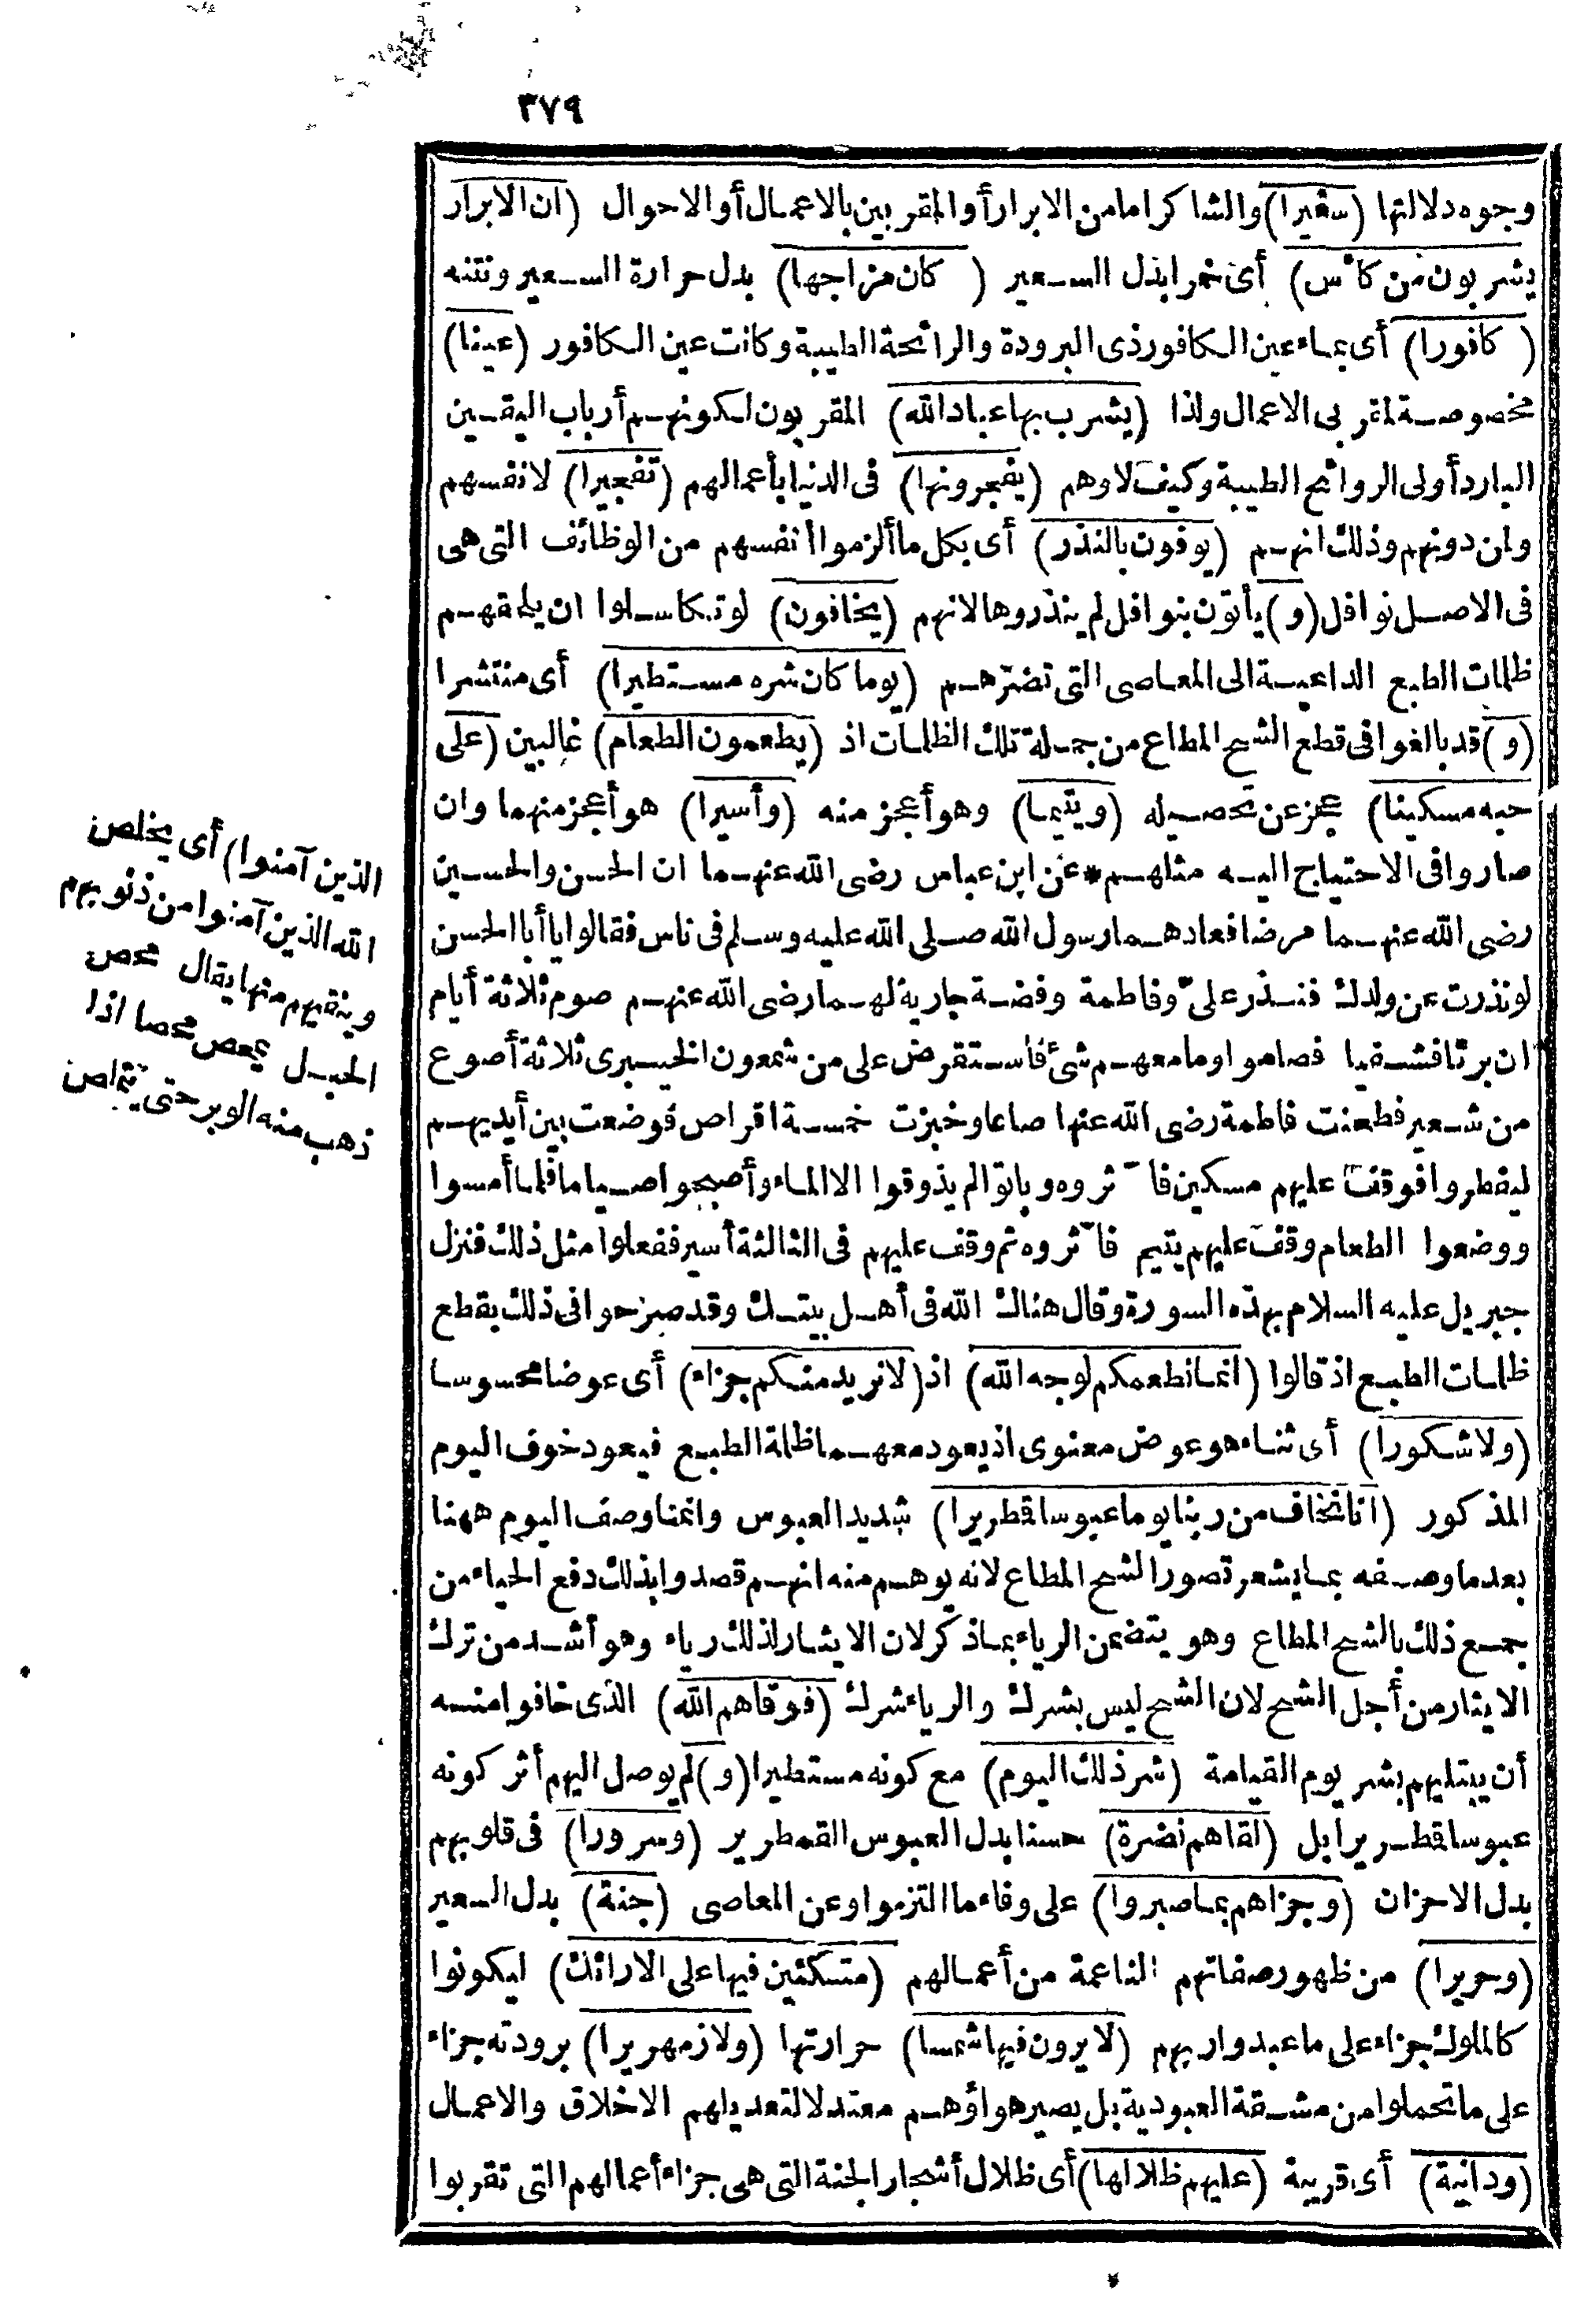 ٣٧٩
وجوه دلالتها (سعيرا) والشاكر اما من الابرار أو المقربين بالاعمال أو الاحوال (ان الابرار
يشربون من كأس) أى خمرا بدل السعير (كان مزاجها) بدل حرارة السعير ونتنه
(كافورا) أى بماء عين الكافور ذى البرودة والرائحة الطيبة وكانت عين الكافور (عينا)
مخصوصة لمقربى الاعمال ولذا (يشرب بها عباد الله) المقربون لكونهم أرباب اليقين
البارد أولى الروائح الطيبة وكيف لا وهم (يفجرونها) فى الدنيا بأعمالهم (تفجيرا) لانفسهم
ولمن دونهم وذلك انهم (يوفون بالنذر) أى بكل ما ألزموا أنفسهم من الوظائف التى هى
فى الاصل نوافل (و) يأتون بنوافل لم ينذروها لانهم (يخافون) لو تكاسلوا ان يلحقهم
ظلمات الطبع الداعية الى المعاصى التى تضرّهم (يوما كان شره مستطيرا) أى منتشرا
(و) قد بالغوا فى قطع الشح المطاع من جملة تلك الظلمات اذ (يطعمون الطعام) غالبين (على
حبه مسكينا) عجز عن تحصيله (ويتيما) وهو أعجز منه (وأسيرا) هو أعجز منهما وان
صاروا فى الاحتياج اليه مثلهم * عن ابن عباس رضى الله عنهما ان الحسن والحسين
رضى الله عنهما مرضا فعادهما رسول الله صلى الله عليه وسلم فى ناس فقالوا يا أبا الحسن
لو نذرت عن ولدك فنذر علىّ وفاطمة وفضة جارية لهما رضى الله عنهم صوم ثلاثة أيام
ان برئا فشفيا فصاموا وما معهم شئ فاستقرض على من شمعون الخيبرى ثلاثة أصوع
من شعير فطحنت فاطمة رضى الله عنها صاعا وخبزت خمسة اقراص فوضعت بين أيديهم
ليفطروا فوقف عليهم مسكين فآثروه وباتوا لم يذوقوا الا الماء وأصبحوا صياما فلما أمسوا
ووضعوا الطعام وقف عليهم يتيم فآثروه ثم وقف عليهم فى الثالثة أسير ففعلوا مثل ذلك فنزل
جبريل عليه السلام بهذه السورة وقال هناك الله فى أهل بيتك وقد صرحوا فى ذلك بقطع
ظلمات الطبع اذ قالوا (انما نطعمكم لوجه الله) اذ (لا نريد منكم جزاء) أى عوضا محسوسا
(ولا شكورا) أى ثناء هو عوض معنوى اذ يعود معهما ظلمة الطبع فيعود خوف اليوم
المذكور (انا نخاف من ربنا يوما عبوسا قمطريرا) شديد العبوس وانما وصف اليوم ههنا
بعد ما وصفه بما يشعر تصور الشح المطاع لانه يوهم منه انهم قصدوا بذلك دفع الحياء من
جمع ذلك بالشح المطاع وهو يتضمن الرياء بما ذكر لان الايثار لذلك رياء وهو أشد من ترك
الايثار من أجل الشح لان الشح ليس بشرك والرياء شرك (فوقاهم الله) الذى خافوا منه
أن يبتليهم بشر يوم القيامة (شر ذلك اليوم) مع كونه مستطيرا (و) لم يوصل اليهم أثر كونه
عبوسا قمطريرا بل (لقاهم نضرة) حسنا بدل العبوس القمطرير (وسرورا) فى قلوبهم
بدل الاحزان (وجزاهم بما صبروا) على وفاء ما التزموا وعن المعاصى (جنة) بدل السعير
(وحريرا) من ظهور صفاتهم الناعمة من أعمالهم (متكئين فيها على الارائك) ليكونوا
كالملوك جزاء على ما عبدوا ربهم (لا يرون فيها شمسا) حرارتها (ولا زمهريرا) برودته جزاء
على ما تحملوا من مشقة العبودية بل يصير هواؤهم معتدلا لتعديلهم الاخلاق والاعمال
(ودانية) أى قريبة (عليهم ظلالها) أى ظلال أشجار الجنة التى هى جزاء أعمالهم التى تقربوا
الذين آمنوا) أى يخلص
الله الذين آمنوا من ذنوبهم
وينقيهم منها يقال محص
الحبل يمحص محصا اذا
ذهب منه الوبر حتى يتملص